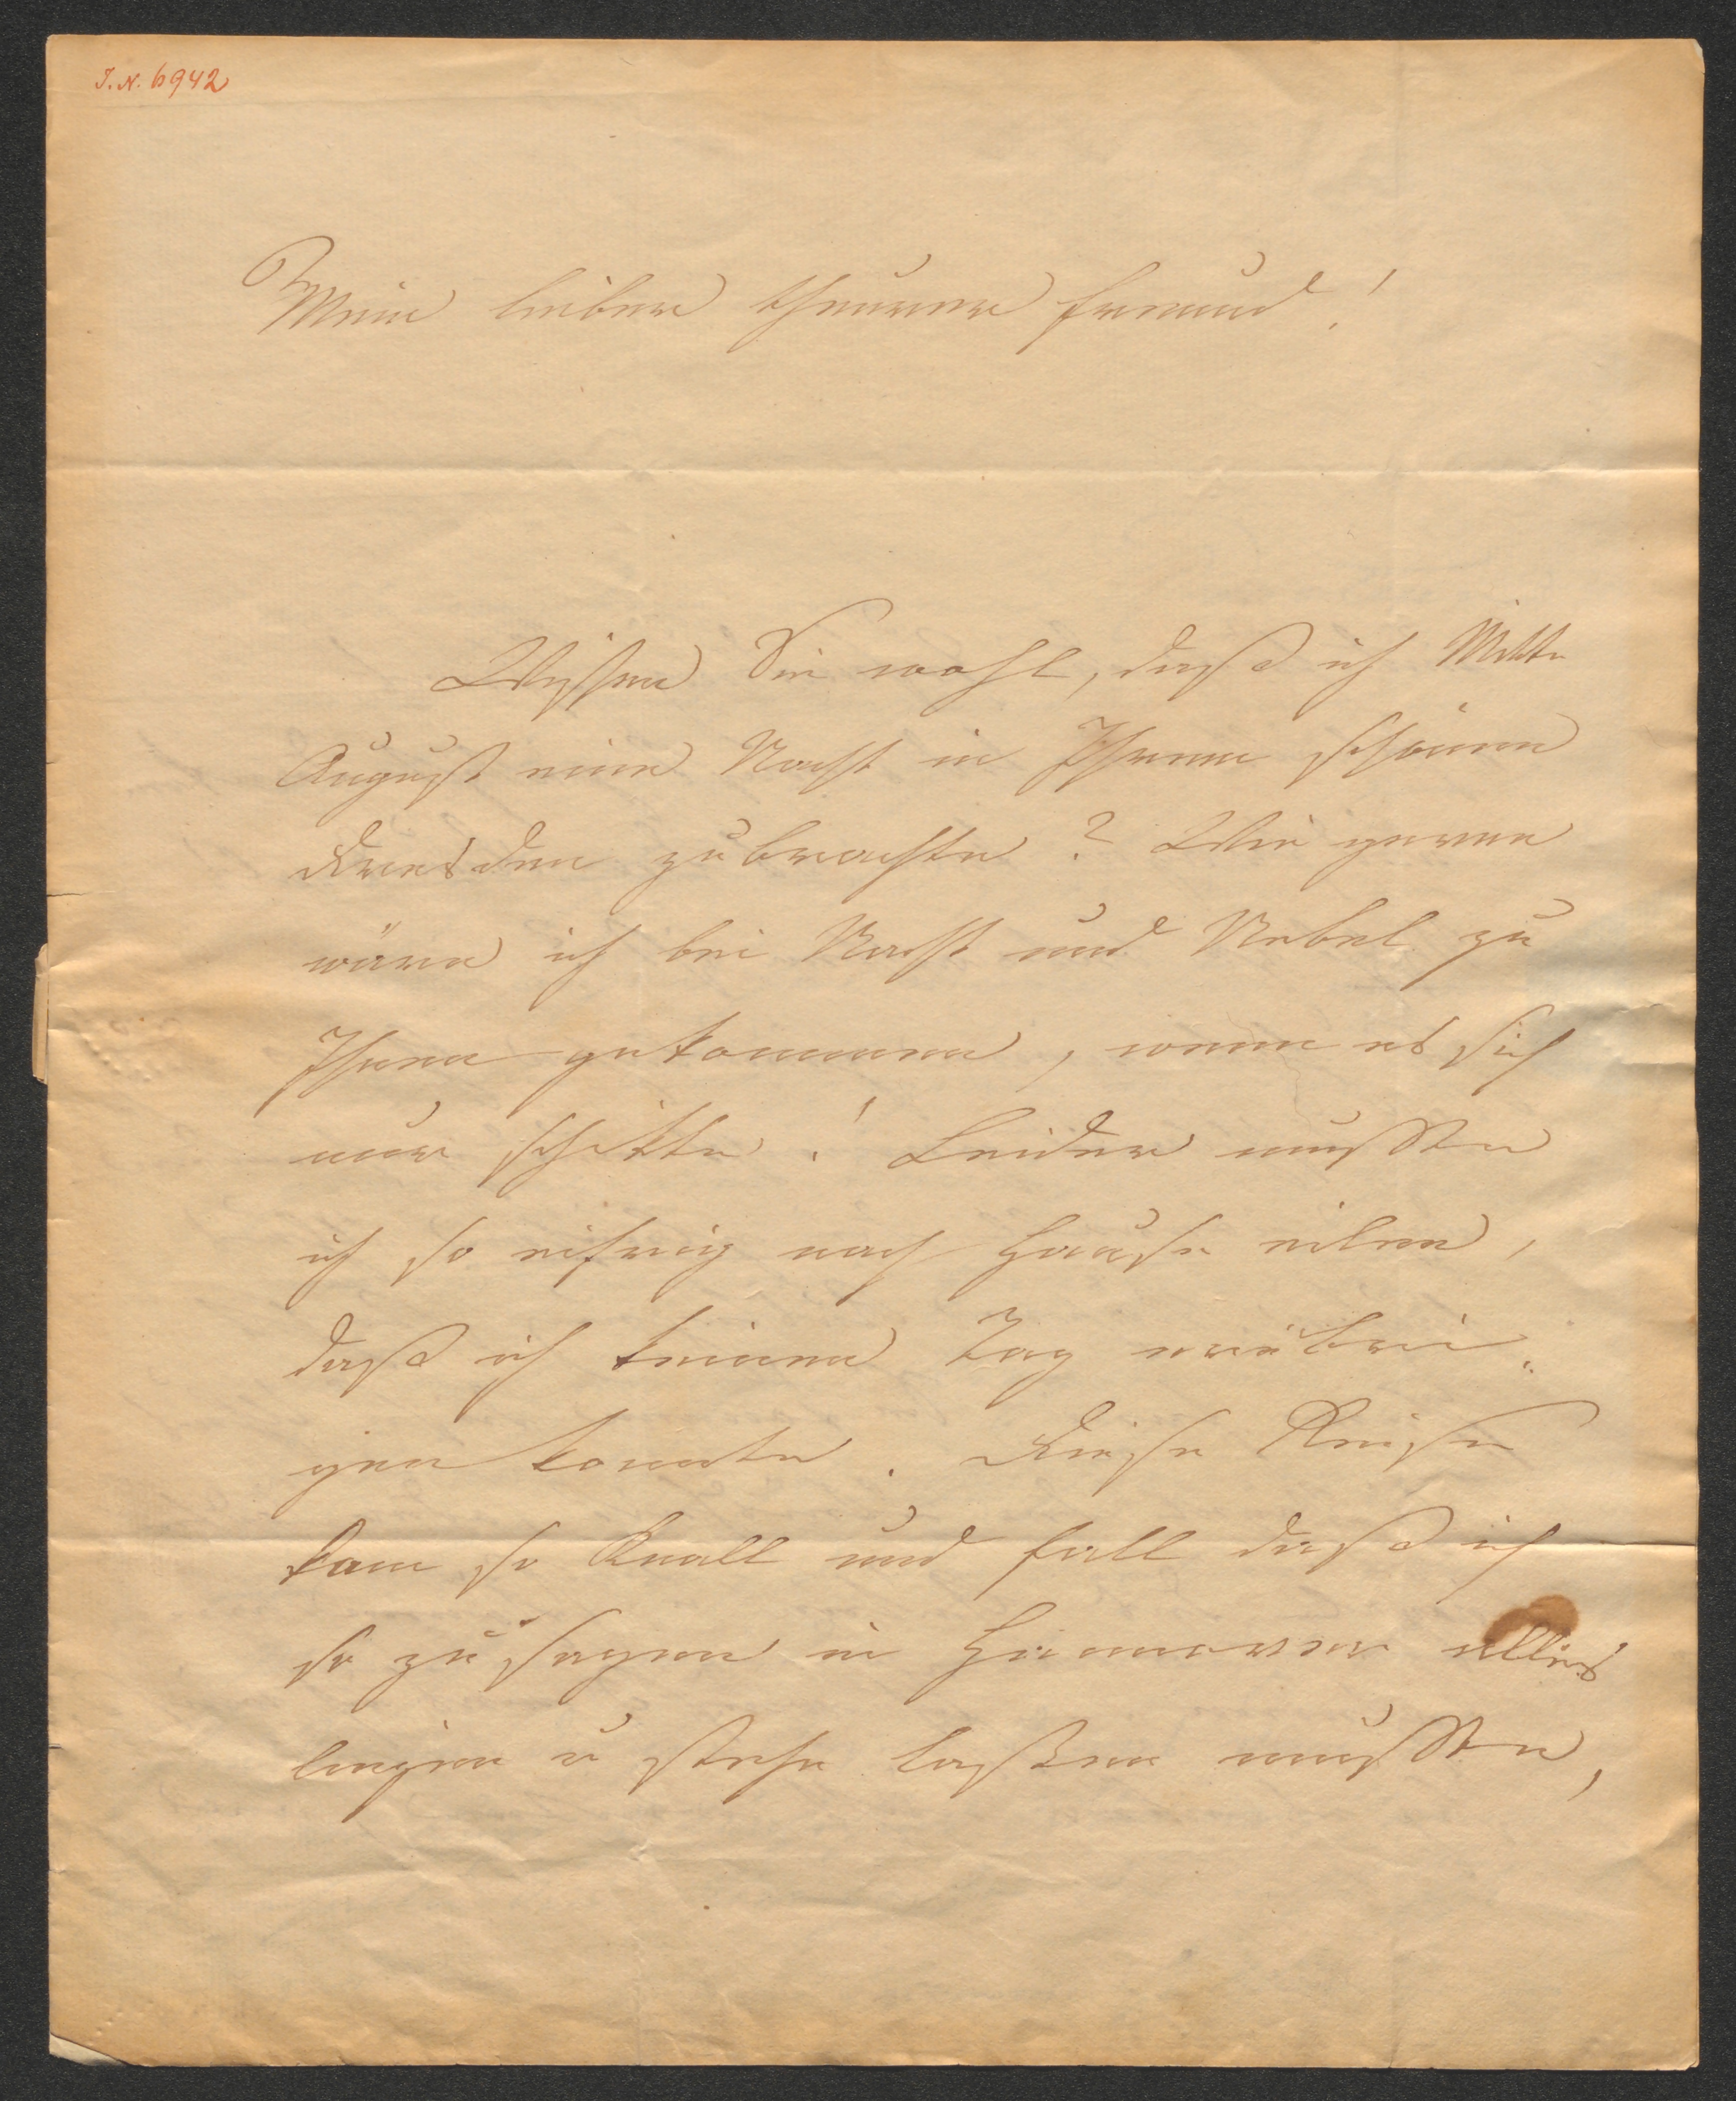 I. N. 6942
Mein lieber theurer Freund!
Wissen Sie wohl, daß ich Mitte
August eine Nacht in Ihrem schönen
Dresden zubrachte? Wie gerne
wäre ich bei Nacht und Nebel zu
Ihnen gekommen, wenn es sich
nur schikte! Leider mußte
ich so eifrig nach Hause eilen,
daß ich keinen Tag erübri-
gen konnte. Diese Reise
kam so Knall und Fall daß ich
so zu sagen in Hannover alles
liegen u stehn laßen mußte,